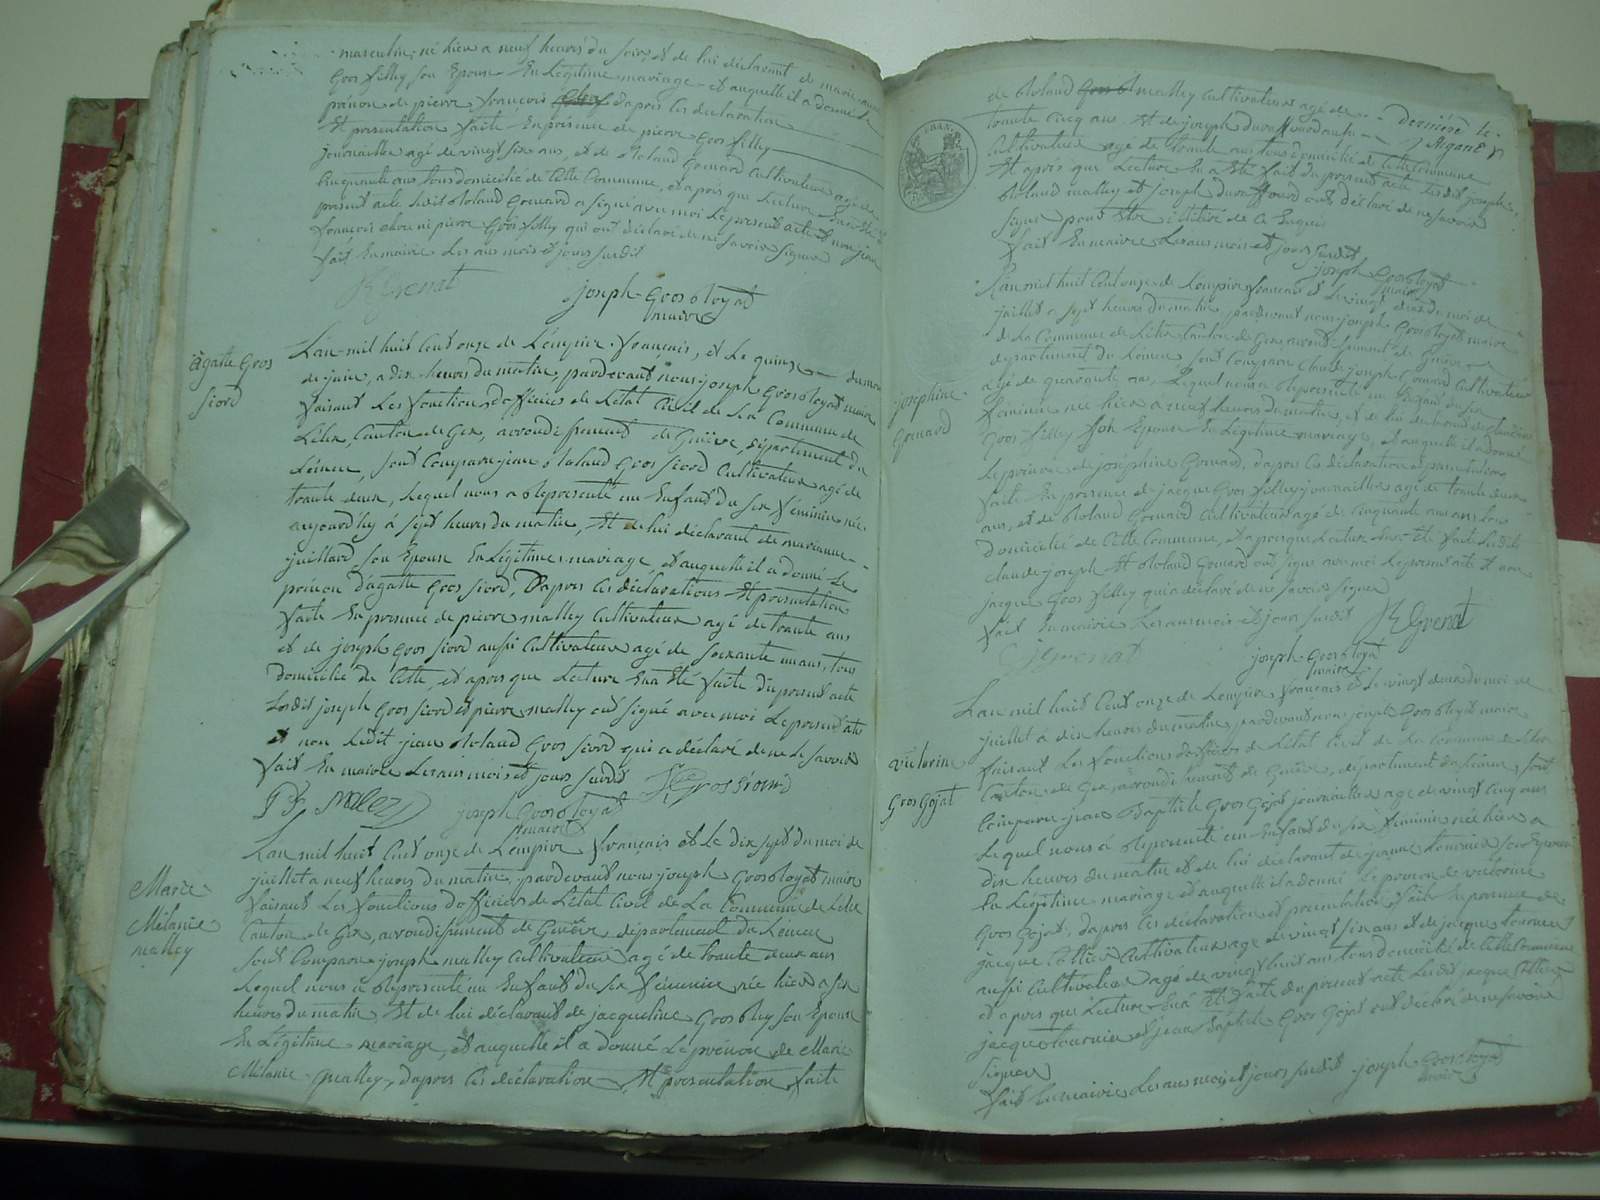 masculin né hier a neuf heures du soir, et de lui déclarant de marie
Gros filley son Epouse En Légitime mariage et auquelle il a donné le
prénon de pierre françois dapres les déclaration
Et présentation faite En présence de pierre Gros filley
journaillier agé de vingt six ans, et de Roland Grenard Cultivateur agé de
Cinquante ans tous domicilié de Cette Commune, et apres que Lecture
présent acte Ledit Roland Grenard a signé avec moi Leprésent acte et non jean
françois ni pierre Gros filley qui ont déclaré de ne savoir signer
fait En mairie Les ans mois et jours susdit
JR Grenat
joseph Gros Royat
maire
Agatte Gros
fiord
L'an mil huit Cent onze de L'empire français, et Le quinze du moi
de juin, a dix heures du matin, pardevant nous joseph Gros Royat maire
faisant Les fonctions dofficier de Létat Civil de La Commune de
Lélex, Canton de Gex, arrondissement de Genêve, département du
Léman, sont Comparu jean Roland Gros fiord Cultivateur agé de
trante deux, Lequel nous a Représenté un Enfant du sex féminin née
aujourdhy à sept heures du matin, Et de lui déclarant de marianne
juillard son Epouse En Légitime mariage, et auquelle il a donné Le
prénon dagatte Gros fiord, Dapres les déclarations Et présentation
faite En présence de pierre malley Cultivateur agé de trante ans
et de joseph Gros fiord aussi Cultivateur agé de soixante un ans, tous
domicilié de Cette, et apres que Lecture En a Eté faite du présent acte
Lesdit joseph Gros fiord et pierre malley ont signé avec moi Le présent acte
et non Ledit jean Roland Gros fiord qui a déclaré de ne le savoir
fait En mairie Les ans mois et jours susdit
Grosfiord
joseph Gros Royat
maire
Marie
Mélanie
malley
L'an mil huit Cent onze de L'empire français et Le dix sept du moi de
juillet a neuf heures du matin, pardevant nous joseph Gros Royat maire
faisant Les fonctions dofficier de Létat Civil de La Commune de Lélex
Canton de Gex, arrondissement de Genêve, département du Léman
sont Comparu joseph malley Cultivateur agé de trante deux ans
Lequel nous a Représenté un Enfant du sex féminin née hier a six
heures du matin, Et de lui déclarant de jacqueline Gros Rey son Epouse
En Légitime mariage, et auquelle il a donné Le prénon de Marie
Mélanie malley, dapres les déclaration Et présentation faite
de Roland malley Cultivateur agé de
trante cinq ans Et de joseph
Cultivateur agé de trante ans tous domicilié de Cette Commune
Et apres que Lecture En a Eté fait du présent acte Lesdit joseph
Roland malley et joseph ont déclaré de ne savoir
signer
fait En mairie Les ans mois et jours susdit
joseph Gros Royat
maire
josephine
Grenard
L'an mil huit Cent onze de L'empire français et Le vingt deux du moi de
juillet a sept heures du matin pardevant nous joseph Gros Royat maire
de La Commune de Lélex, Canton de Gex, arrondissement de Genêve
département du Léman sont Comparu Claude joseph Grenard Cultivateur
agé de quarante ans, Lequel nous a Représenté un Enfant du sex
féminin née hier a neuf heures du matin, et de lui déclarant de
Gros filley son Epouse En Légitime mariage, et auquelle il a donné
Le prénon de josephine Grenard, dapres les déclaration et présentation
faite En présence de jacque Gros filley journaillier agé de trante
ans, et de Roland Grenard Cultivateur agé de Cinquante ans tous
domicilié de Cette Commune, Et apres que Lecture En a Eté faite Lesdit
Claude joseph Et Roland Grenard ont signé avec moi Le présent acte Et non
jacque Gros filley qui a déclaré de ne savoir signer
fait En mairie Les ans mois et jours susdit
JR Grenat
joseph Gros Royat
maire
victorine
Gros Gojat
L'an mil huit Cent onze de L'empire français et Le vingt deux du moi de
juillet a dix heures du matin, pardevant nous joseph Gros Royat maire
faisant Les fonctions dofficier de Létat Civil de La Commune de Lélex
Canton de Gex, arrondissement de Genêve, département du Léman, sont
Comparu jean Baptiste Gros Gojat journaillier agé de vingt Cinq ans
Lequel nous a Représenté un Enfant du sex féminin née hier a
dix heures du matin et de lui déclarant de jeanne son Epouse
En Légitime mariage et auquelle il a donné Le prénon de victorine
Gros Gojat, dapres les déclaration et présentation, faite En présence de
jacque Cultivateur agé de vingt six ans et de jacque tournier
aussi Cultivateur agé de vingt huit ans tous domicilié de Cette Commune
et apres que Lecture En a Eté faite du présent acte Lesdit jacque
jacque tournier et jean Baptiste Gros Gojat ont déclaré de ne savoir
signer
fait En mairie Les ans mois et jours susdit joseph Gros Royat
maire